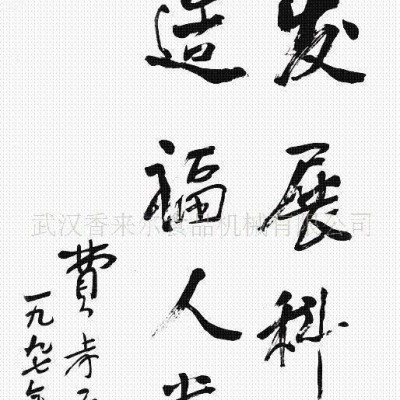 发展科
造福人
費孝
一九九七年
武汉香来尔食品机械有限公司